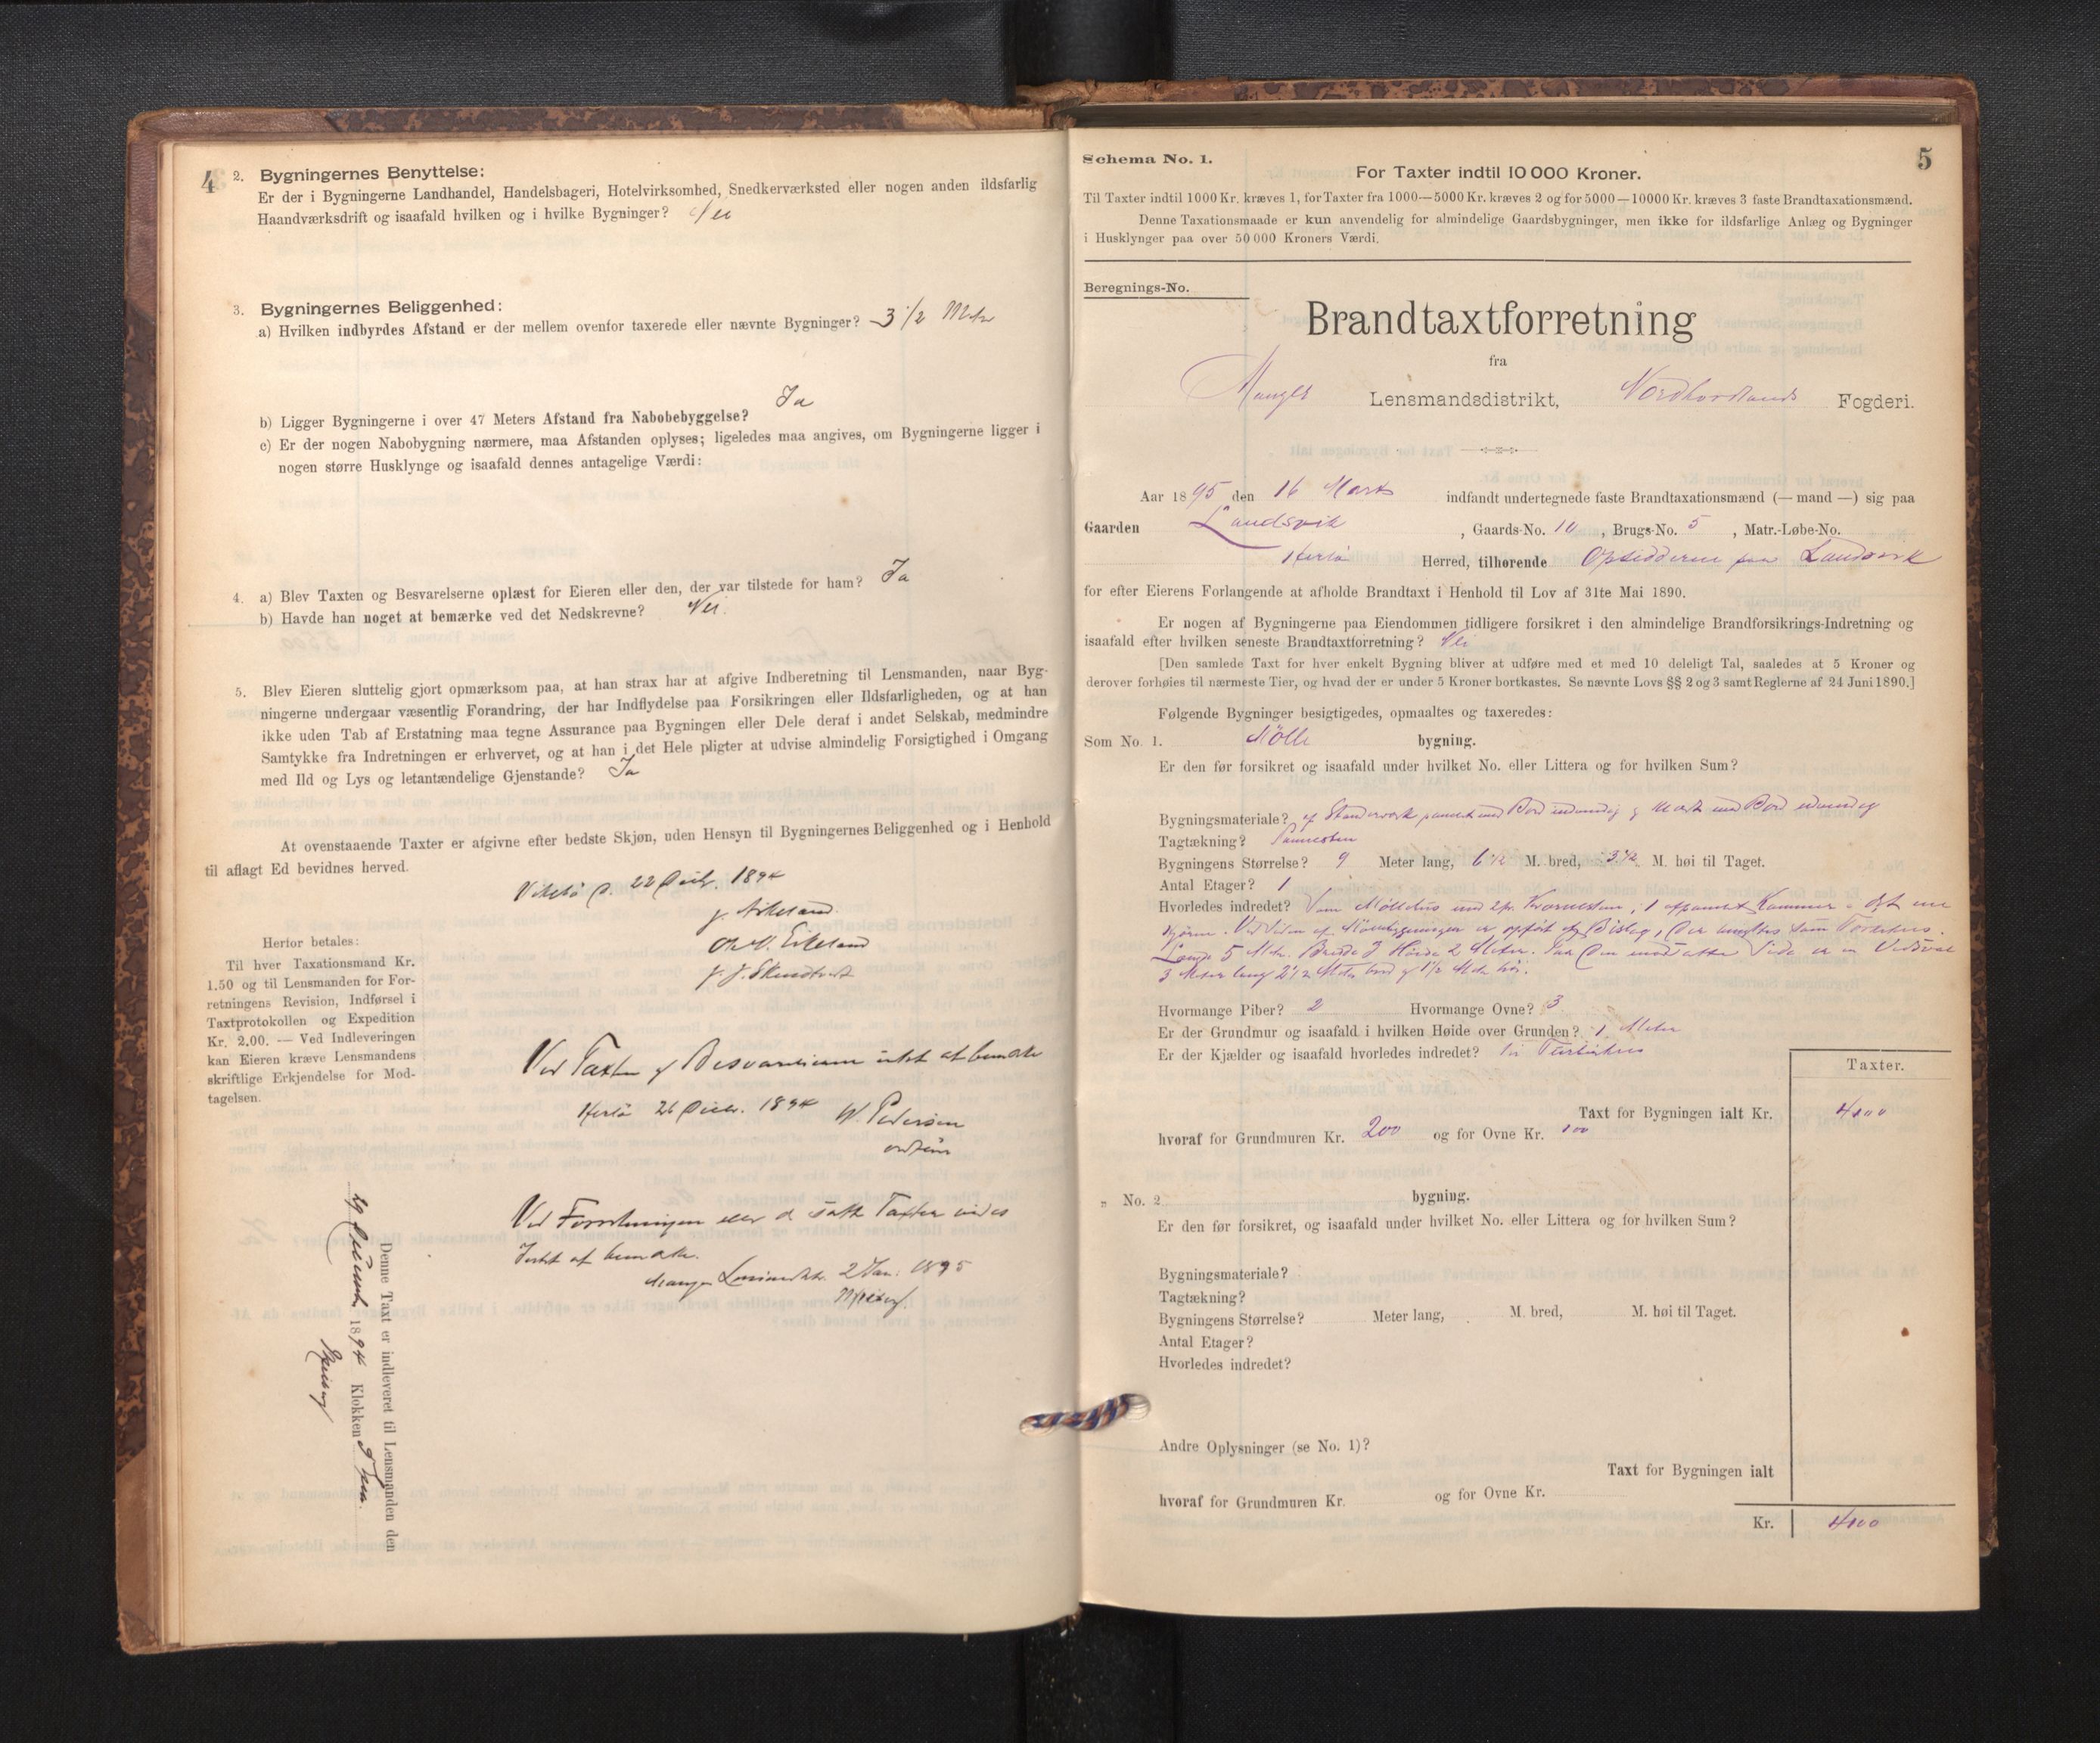 4
2. Bygningernes Benyttelse:
Er der i Bygningerne Landhandel, Handelsbageri, Hotelvirksomhed, Snedkerværksted eller nogen anden ildsfarlig
Haandværksdrift og isaafald hvilken og i hvilke Bygninger? Nei
3. Bygningernes Beliggenhed:
a) Hvilken indbyrdes Afstand er der mellem ovenfor taxerede eller nævnte Bygninger? 3 1/2 Meter
b) Ligger Bygningerne i over 47 Meters Afstand fra Nabobebyggelse? Ja
c) Er der nogen Nabobygning nærmere, maa Afstanden oplyses; ligeledes maa angives, om Bygningerne ligger i
nogen større Husklynge og isaafald dennes antagelige Værdi:
4. a) Blev Taxten og Besvarelserne oplæst for Eieren eller den, der var tilstede for ham? Ja
b) Havde han noget at bemærke ved det Nedskrevne? Nei.
5. Blev Eieren sluttelig gjort opmærksom paa, at han strax har at afgive Indberetning til Lensmanden, naar Byg-
ningerne undergaar væsentlig Forandring, der har Indflydelse paa Forsikringen eller Ildsfarligheden, og at han
ikke uden Tab af Erstatning maa tegne Assurance paa Bygningen eller Dele deraf i andet Selskab, medmindre
Samtykke fra Indretningen er erhvervet, og at han i det Hele pligter at udvise almindelig Forsigtighed i Omgang
med Ild og Lys og letantændelige Gjenstande? Ja
At ovenstaaende Taxter er afgivne efter bedste Skjøn, uden Hensyn til Bygningernes Beliggenhed og i Henhold
til aflagt Ed bevidnes herved.
22 Decbr. 1894
Herfor betales:
Til hver Taxationsmand Kr.
1.50 og til Lensmanden for For-
retningens Revision, Indførsel i
Taxtprotokollen og Expedition
Kr. 2.00. — Ved Indleveringen
kan Eieren kræve Lensmandens
skriftlige Erkjendelse for Mod-
tagelsen.
Ved Taxten og Besvarelserne intet at bemærke
Herlø 26 Decbr. 1894 W. Pedersen
Ved Forretningen eller de satte Taxter vides
Intet at bemærke.
2 Jan. 1895
Denne Taxt er indleveret til Lensmanden den
29 Decembr 1894 Klokken
Schema No. 1.
5
For Taxter indtil 10 000 Kroner.
Til Taxter indtil 1000 Kr. kræves 1, for Taxter fra 1000—5000 Kr. kræves 2 og for 5000—10000 Kr. kræves 3 faste Brandtaxationsmænd.
Denne Taxationsmaade er kun anvendelig for almindelige Gaardsbygninger, men ikke for ildsfarlige Anlæg og Bygninger
i Husklynger paa over 50 000 Kroners Værdi.
Beregnings-No.
Brandtaxtforretning
fra
Mangers Lensmandsdistrikt, Nordhordlands Fogderi.
Aar 1895 den 16 Marts indfandt undertegnede faste Brandtaxationsmænd (— mand —) sig paa
Gaarden Landsvik, Gaards-No. 10, Brugs-No. 5, Matr.-Løbe-No.
Herlø Herred, tilhørende Opsidderne paa Landsvik
for efter Eierens Forlangende at afholde Brandtaxt i Henhold til Lov af 31te Mai 1890.
Er nogen af Bygningerne paa Eiendommen tidligere forsikret i den almindelige Brandforsikrings-Indretning og
isaafald efter hvilken seneste Brandtaxtforretning? Nei
[Den samlede Taxt for hver enkelt Bygning bliver at udføre med et med 10 deleligt Tal, saaledes at 5 Kroner og
derover forhøies til nærmeste Tier, og hvad der er under 5 Kroner bortkastes. Se nævnte Lovs §§ 2 og 3 samt Reglerne af 24 Juni 1890.]
Følgende Bygninger besigtigedes, opmaaltes og taxeredes:
Som No. 1. Mølle bygning.
Er den før forsikret og isaafald under hvilket No. eller Littera og for hvilken Sum?
Bygningsmateriale? af Stenderværk panelet med Bord indvendig og klædt med Bord udvendig
Tagtækning? Pannesten
Bygningens Størrelse? 9 Meter lang, 6 1/2 M. bred, 3 1/2 M. høi til Taget.
Antal Etager? 1
Hvorledes indredet? Som Møllehus med 2 pr. Kværnstene, 1 afpanelet Kammer i det ene
Hjørne. Ved Siden af Møllebygningen er opført et Bislag, der benyttes som
Længde 5 Meter. Bredde 3 Høide 2 Meter. Paa den modsatte Side er en Vedsval
3 Meter lang 2 1/2 Meter bred og 1 1/2 Meter høi.
Hvormange Piber? 2 Hvormange Ovne? 3
Er der Grundmur og isaafald i hvilken Høide over Grunden? 1 Meter
Er der Kjælder og isaafald hvorledes indredet?
Taxter.
Taxt for Bygningen ialt Kr. 4000
hvoraf for Grundmuren Kr. 200 og for Ovne Kr. 100
„ No. 2 bygning.
Er den før forsikret, og isaafald under hvilket No. eller Littera og for hvilken Sum?
Bygningsmateriale?
Tagtækning?
Bygningens Størrelse? Meter lang, M. bred, M. høi til Taget.
Antal Etager?
Hvorledes indredet?
Andre Oplysninger (se No. 1)?
Taxt for Bygningen ialt
hvoraf for Grundmuren Kr. og for Ovne Kr.
Kr. 4000